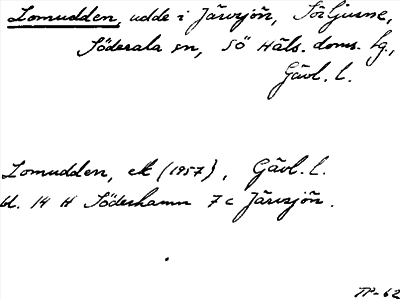 Lomudden, udde i Järvsjön, Sörljusne,
Söderala sn, Sö Häls. doms. lg.,
Gävl. l.
Lomudden, ek (1957), Gävl. l.
bl. 14 H Söderhamn 7 c Järvsjön.
TP-62